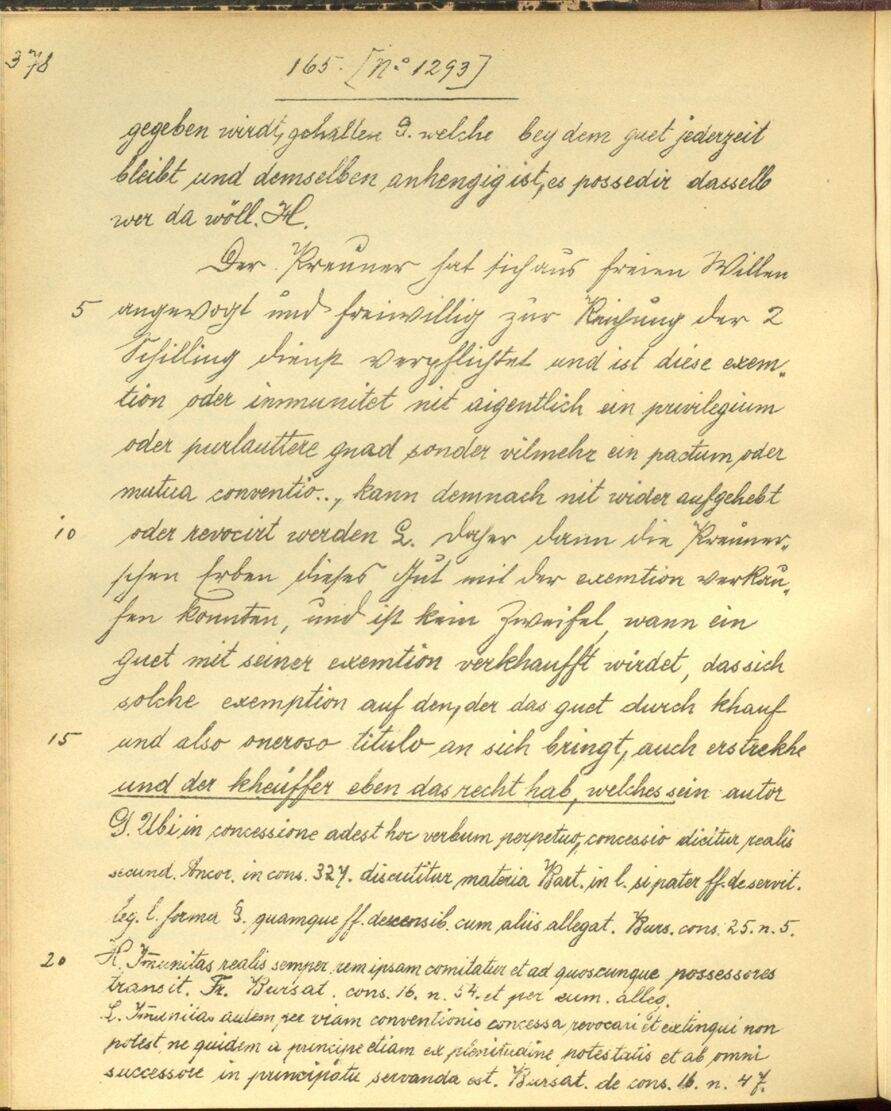 378
165. [No 1293]
gegeben wirdt, gehalten G. welche bey dem guet jederzeit
bleibt und demselben anhengig ist, es possedir dasselb
wer da wöll. H.
Der Kreuner hat sich aus freien Willen
5 angevogt und freiwillig zur Reichung der 2
Schilling dienst verpflichtet und ist diese exem„
tion oder immunitet nit aigentlich ein privilegium
oder purlauttere gnad sonder vilmehr ein pactum oder
mutua conventio.., kann demnach nit wider aufgehebt
10 oder revocirt werden L. daher dann die Kreuner„
schen Erben dieses Gut mit der exemtion verkau„
fen konnten, und ist kein Zweifel, wann ein
guet mit seiner exemtion verkhaufft wirdet, das sich
solche exemption auf den, der das guet durch khauf
15 und also oneroso titulo an sich bringt, auch erstrekhe
und der kheüffer eben das recht hab, welches sein autor
G. Ubi in concessione adest hoc verbum perpetuo, concessio dicitur realis
secund. Ancor. in cons. 327. discutitur materia Bart. in l. si pater ff. de servit.
leg. l. forma §. quamque ff. de censib. cum aliis allegat. Burs. cons. 25. n. 5.
20 H. Imunitas realis semper rem ipsam comitatur et ad quoscunque possessores
transit. Fr. Bursat. cons. 16. n. 54. et per eum. alleg.
L. Imunitas autem per viam conventionis concessa revocari et extingui non
potest, ne quidem a principe etiam ex plenitudine potestatis et ab omni
successore in principatu servanda est. Bursat. de cons. 16. n. 47.